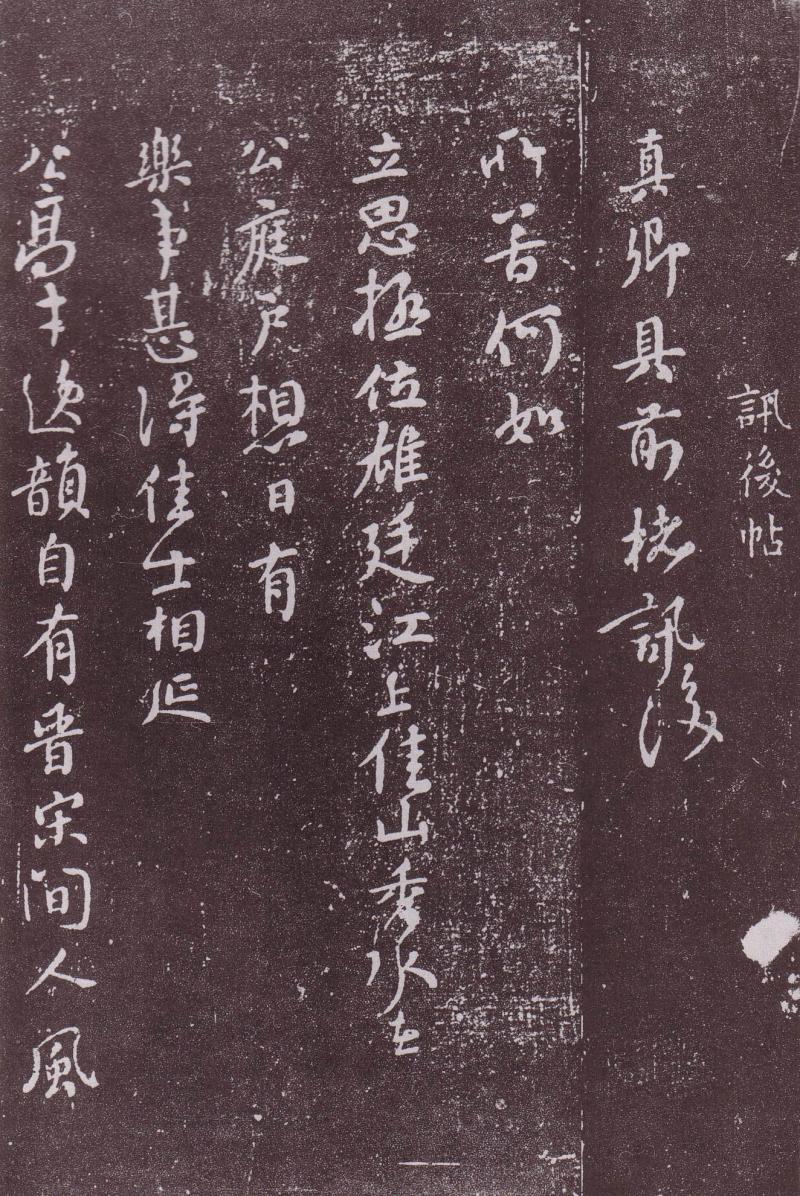 訊後帖
真卿具前楮訊後
所苦何如
立思極位雄廷江上佳山秀水在
公庭戶想日有
樂事甚得佳士相延
公高才逸韻自有晉宋間人風